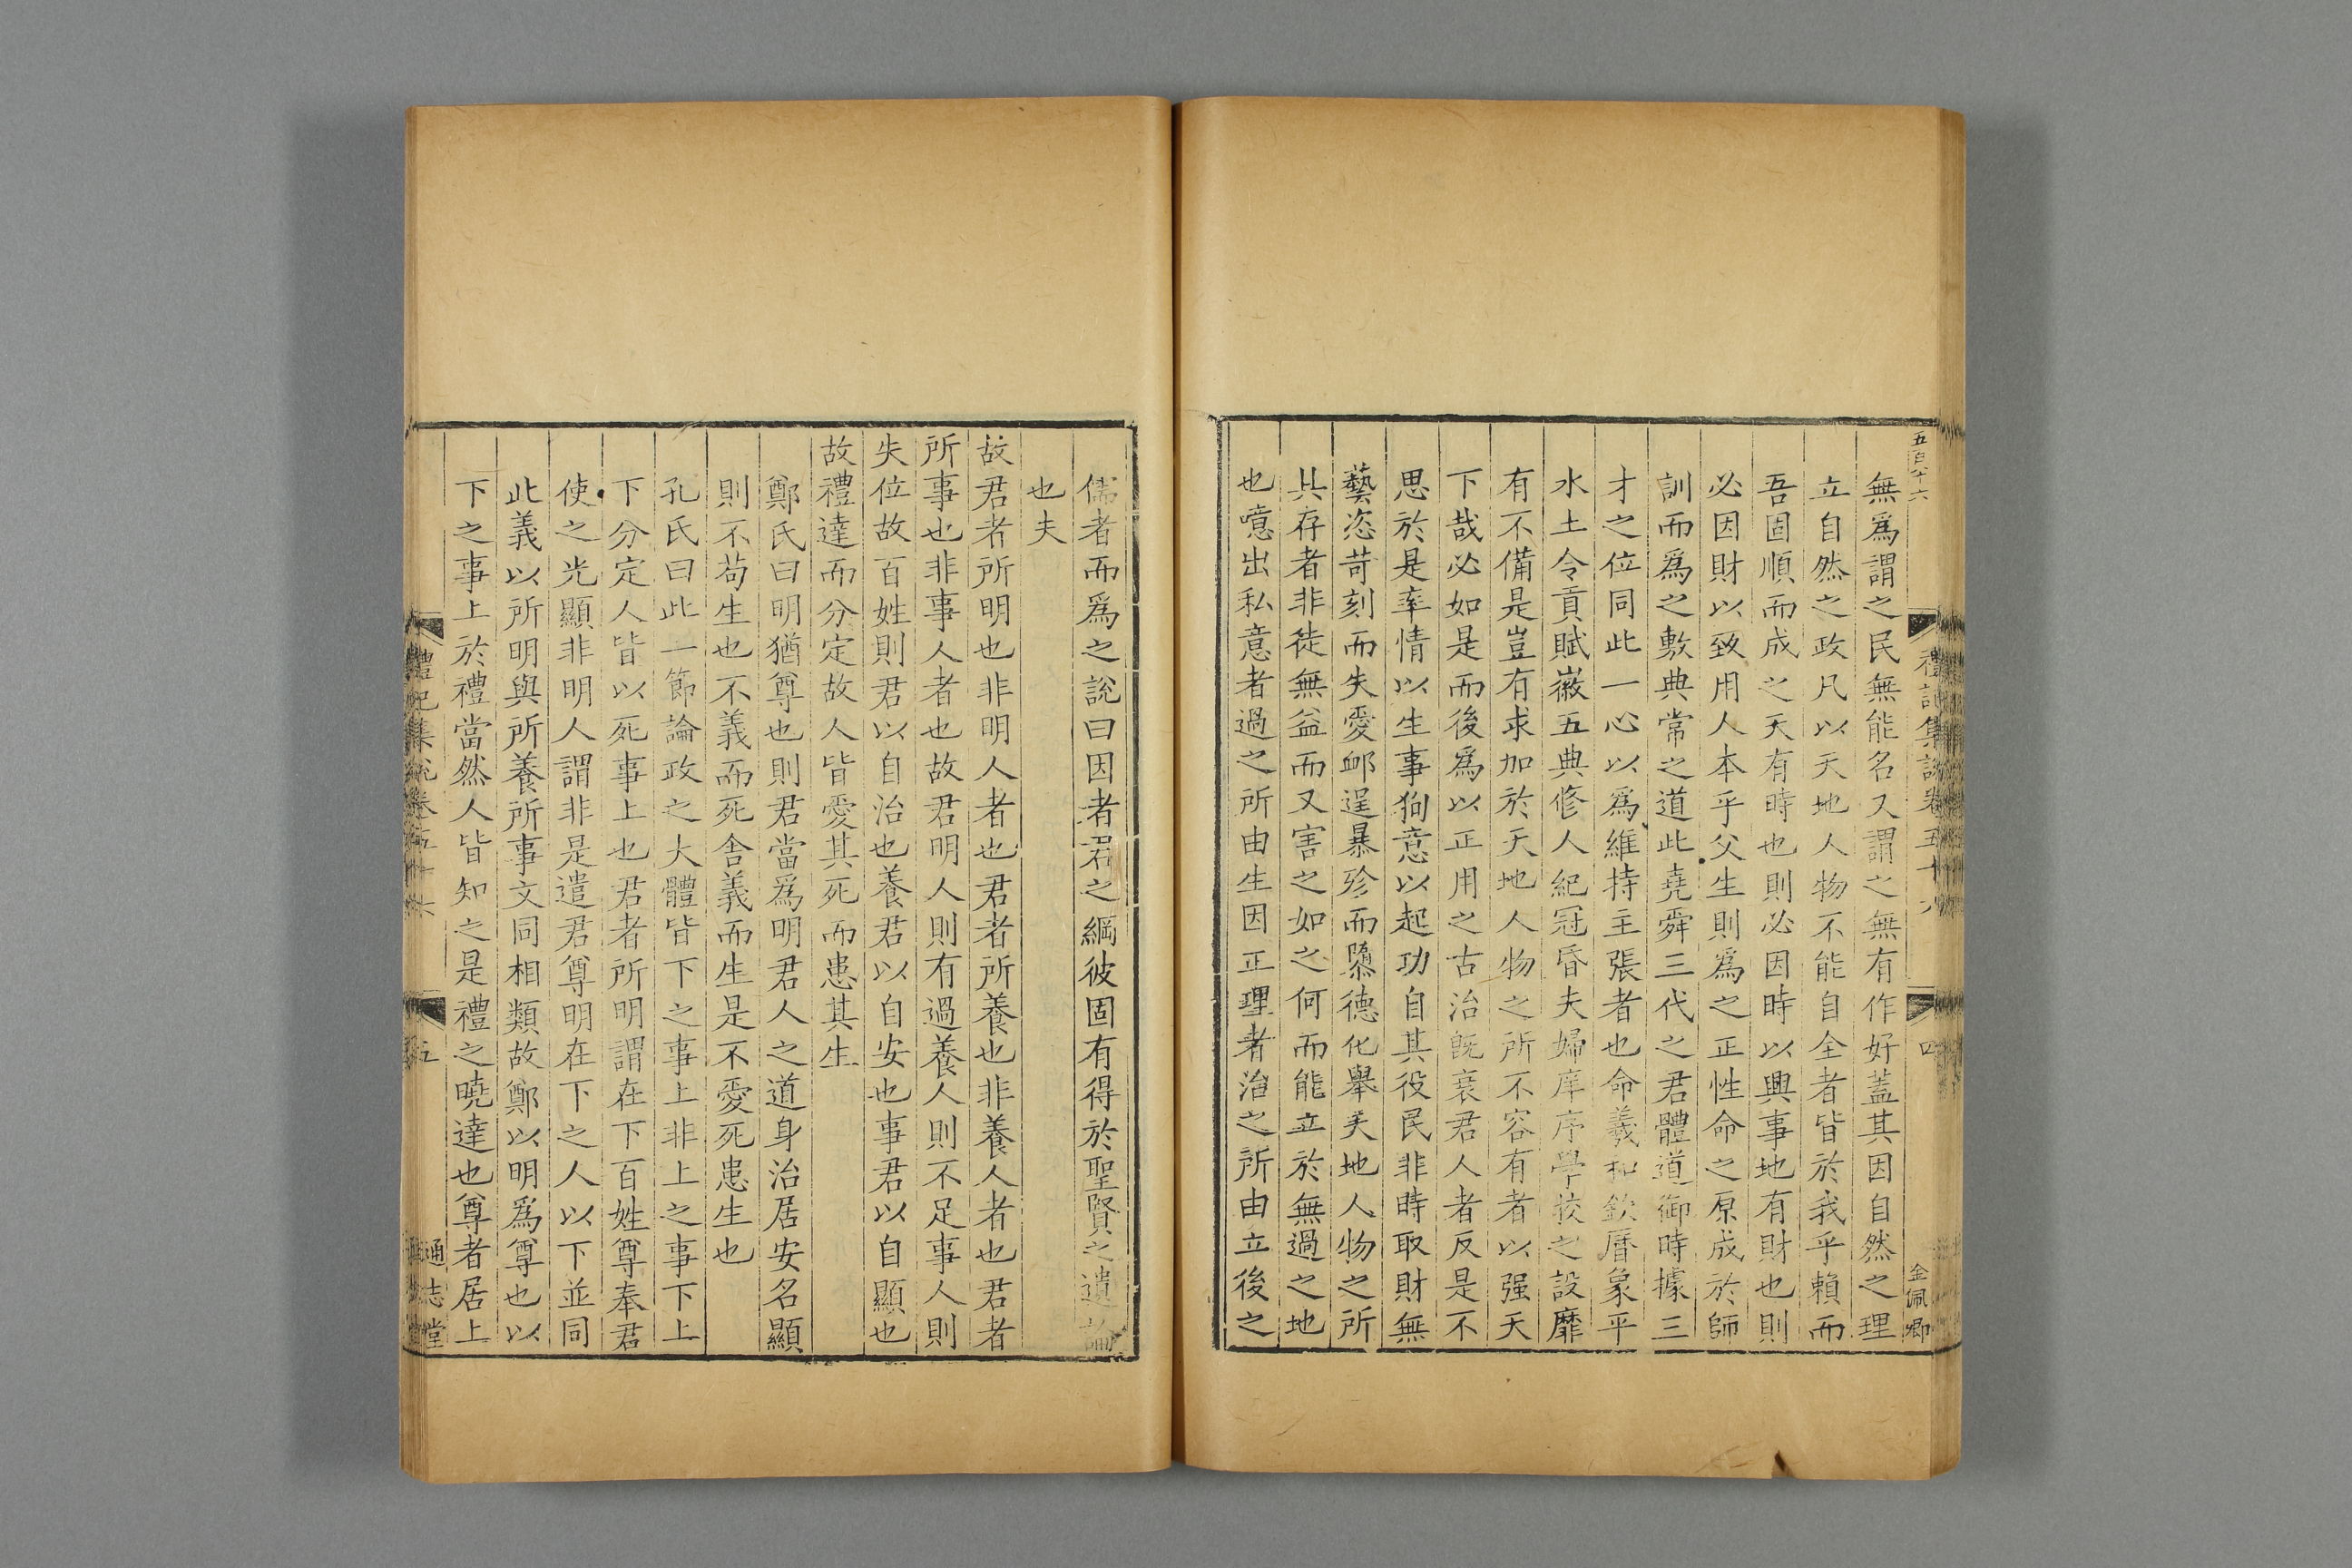 五百十六
禮記集說卷五十六
四
金佩卿
無爲謂之民無能名又謂之無有作好蓋其因自然之理
立自然之政凡以天地人物不能自全者皆於我乎賴而
吾固順而成之天有時也則必因時以興事地有財也則
必因財以致用人本乎父生則爲之正性命之原成於師
訓而爲之敷典常之道此堯舜三代之君體道御時據三
才之位同此一心以爲維持主張者也命羲和欽曆象平
水土令貢賦徽五典修人紀冠昏夫婦庠序學校之設靡
有不備是豈有求加於天地人物之所不容有者以强天
下哉必如是而後爲以正用之古治旣衰君人者反是不
思於是率情以生事狥意以起功自其役民非時取財無
藝恣苛刻而失愛邮逞暴殄而隳德化舉天地人物之所
共存者非徒無益而又害之如之何而能立於無過之地
也噫出私意者過之所由生因正理者治之所由立後之
儒者而爲之說曰因者君之綱彼固有得於聖賢之遺論
也夫
故君者所明也非明人者也君者所養也非養人者也君者
所事也非事人者也故君明人則有過養人則不足事人則
失位故百姓則君以自治也養君以自安也事君以自顯也
故禮達而分定故人皆愛其死而患其生
鄭氏曰明猶尊也則君當爲明君人之道身治居安名顯
則不苟生也不義而死舍義而生是不愛死患生也
孔氏曰此一節論政之大體皆下之事上非上之事下上
下分定人皆以死事上也君者所明謂在下百姓尊奉君
使之光顯非明人謂非是遣君尊明在下之人以下並同
此義以所明與所養所事文同相類故鄭以明爲尊也以
下之事上於禮當然人皆知之是禮之曉達也尊者居上
禮記集說卷五十六
五
通志堂